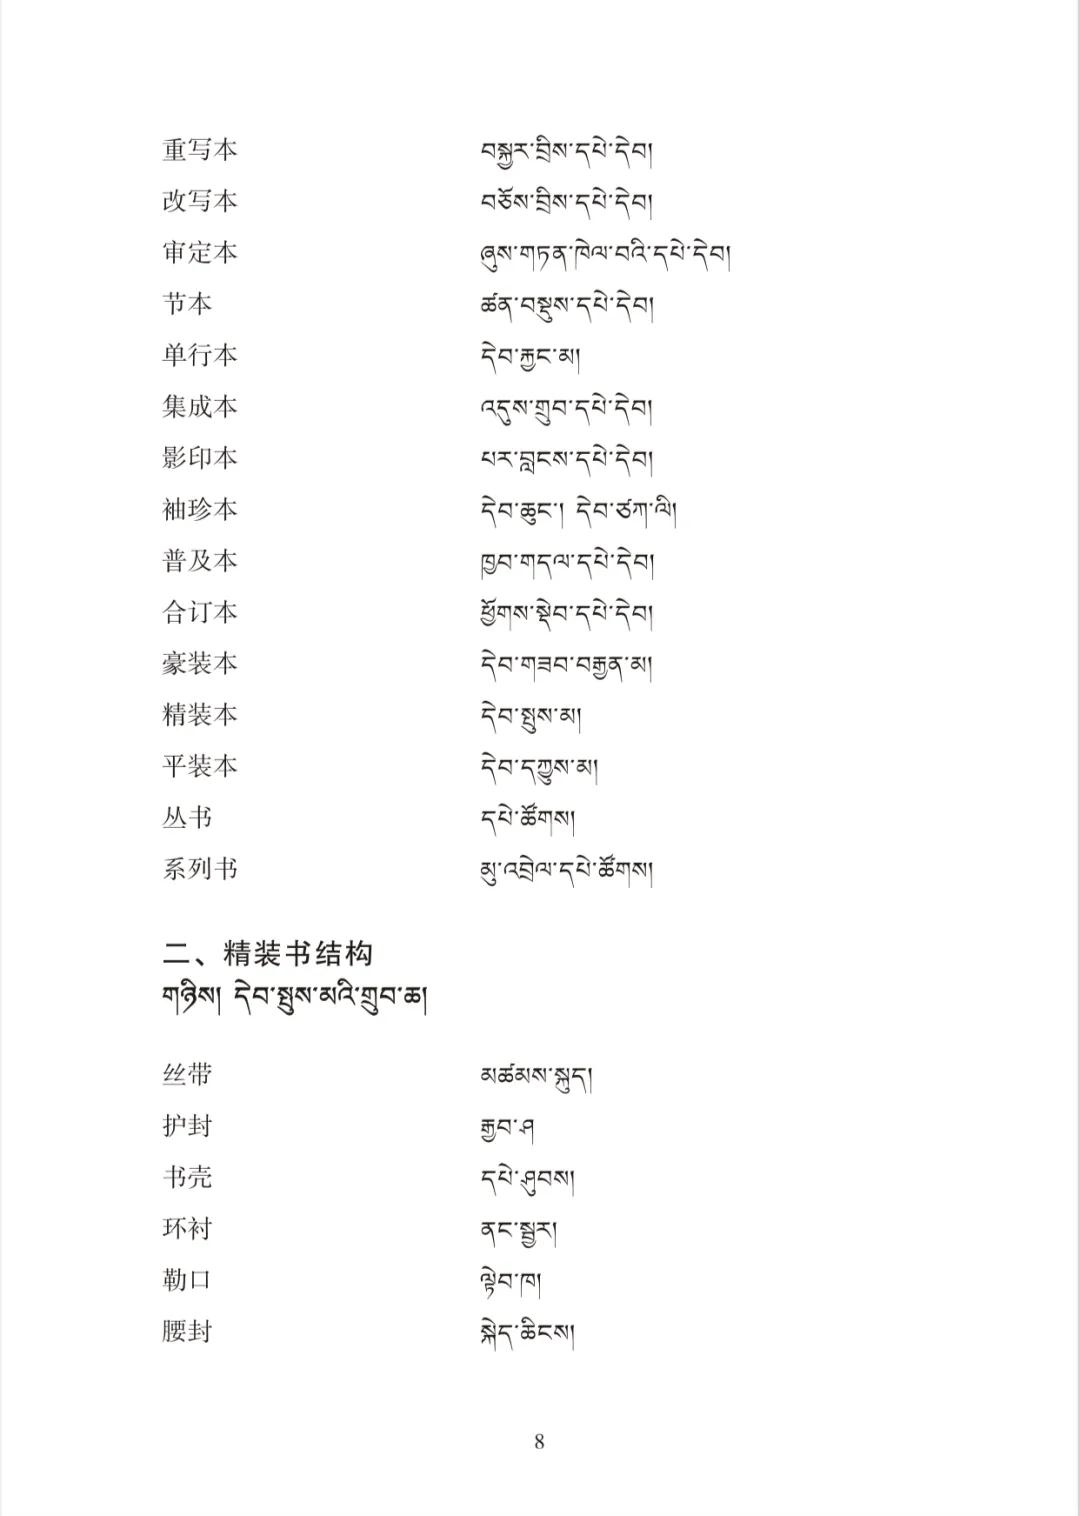 重写本 བསྐྱར་བྲིས་དཔེ་དེབ།
改写本 བཅོས་བྲིས་དཔེ་དེབ།
审定本 ཞུས་གཏན་ཁེལ་བའི་དཔེ་དེབ།
节本 ཚན་བསྡུས་དཔེ་དེབ།
单行本 དེབ་རྐྱང་མ།
集成本 འདུས་གྲུབ་དཔེ་དེབ།
影印本 པར་བླངས་དཔེ་དེབ།
袖珍本 དེབ་ཆུང་། དེབ་ཙཀ་ལི།
普及本 ཁྱབ་གདལ་དཔེ་དེབ།
合订本 ཕྱོགས་སྡེབ་དཔེ་དེབ།
豪装本 དེབ་གཟབ་བརྒྱན་མ།
精装本 དེབ་སྤུས་མ།
平装本 དེབ་དཀྱུས་མ།
丛书 དཔེ་ཚོགས།
系列书 མུ་འབྲེལ་དཔེ་ཚོགས།
二、精装书结构
གཉིས། དེབ་སྤུས་མའི་གྲུབ་ཆ།
丝带 མཚམས་སྐུད།
护封 རྒྱབ་ཤ
书壳 དཔེ་ཤུབས།
环衬 ནང་སྦྱར།
勒口 ལྟེབ་ཁ།
腰封 སྐེད་ཆིངས།
8